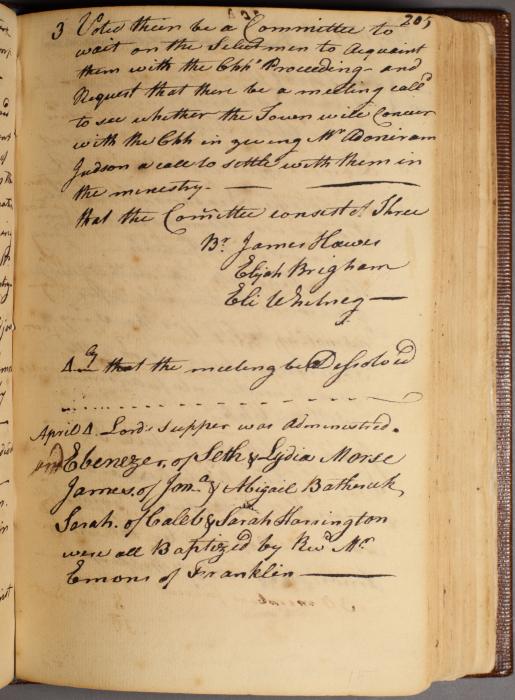 205
3 Voted their be a Committee to
wait on the Selectmen to Acquaint
them with the Chhs Proceeding - and
Request that there be a meeting calld
to see whether the Town will Concur
with the Chh in giveing Mr Adoniram
Judson a call to settle with them in
the minestry. —
that the Comittee consist of Three
Br James Hawes
Elijah Brigham
Eli Whitney —
4ly that the meeting be Dissolved
April 4. Lords Supper was Administred.
and Ebenezer, of Seth & Lydia Morse
James. of Jona & Abigail Batherick
Sarah. of Caleb & Sarah Harrington
were all Baptized by Revd Mr
Emons of Franklin —